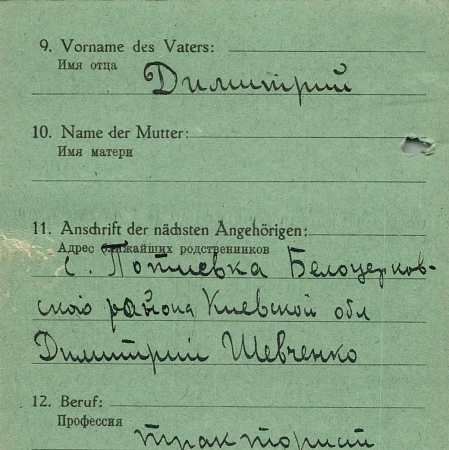 9. Vorname des Vaters:
Имя отца
Димитрий
10. Name der Mutter:
Имя матери
11. Anschrift der nächsten Angehörigen:
Адрес ближайших родственников
с. Потиевка Белоцерков-
ского района Киевской обл
Димитрий Шевченко
12. Beruf:
Профессия
тракторист